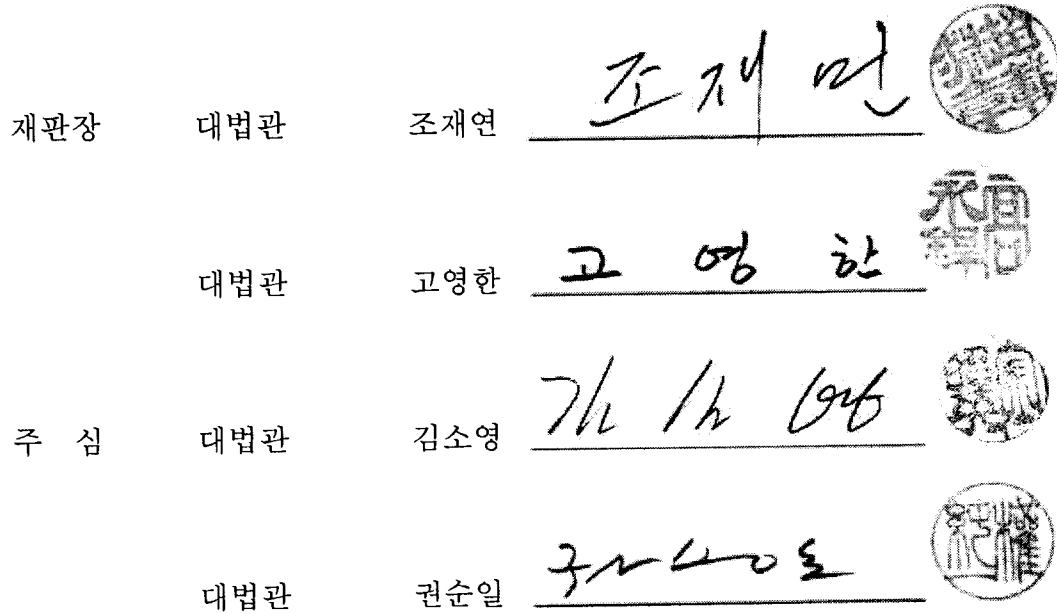 재판장 대법관 조재연 조재연
대법관 고영한 고영한
주 심 대법관 김소영 김소영
대법관 권순일 권순일